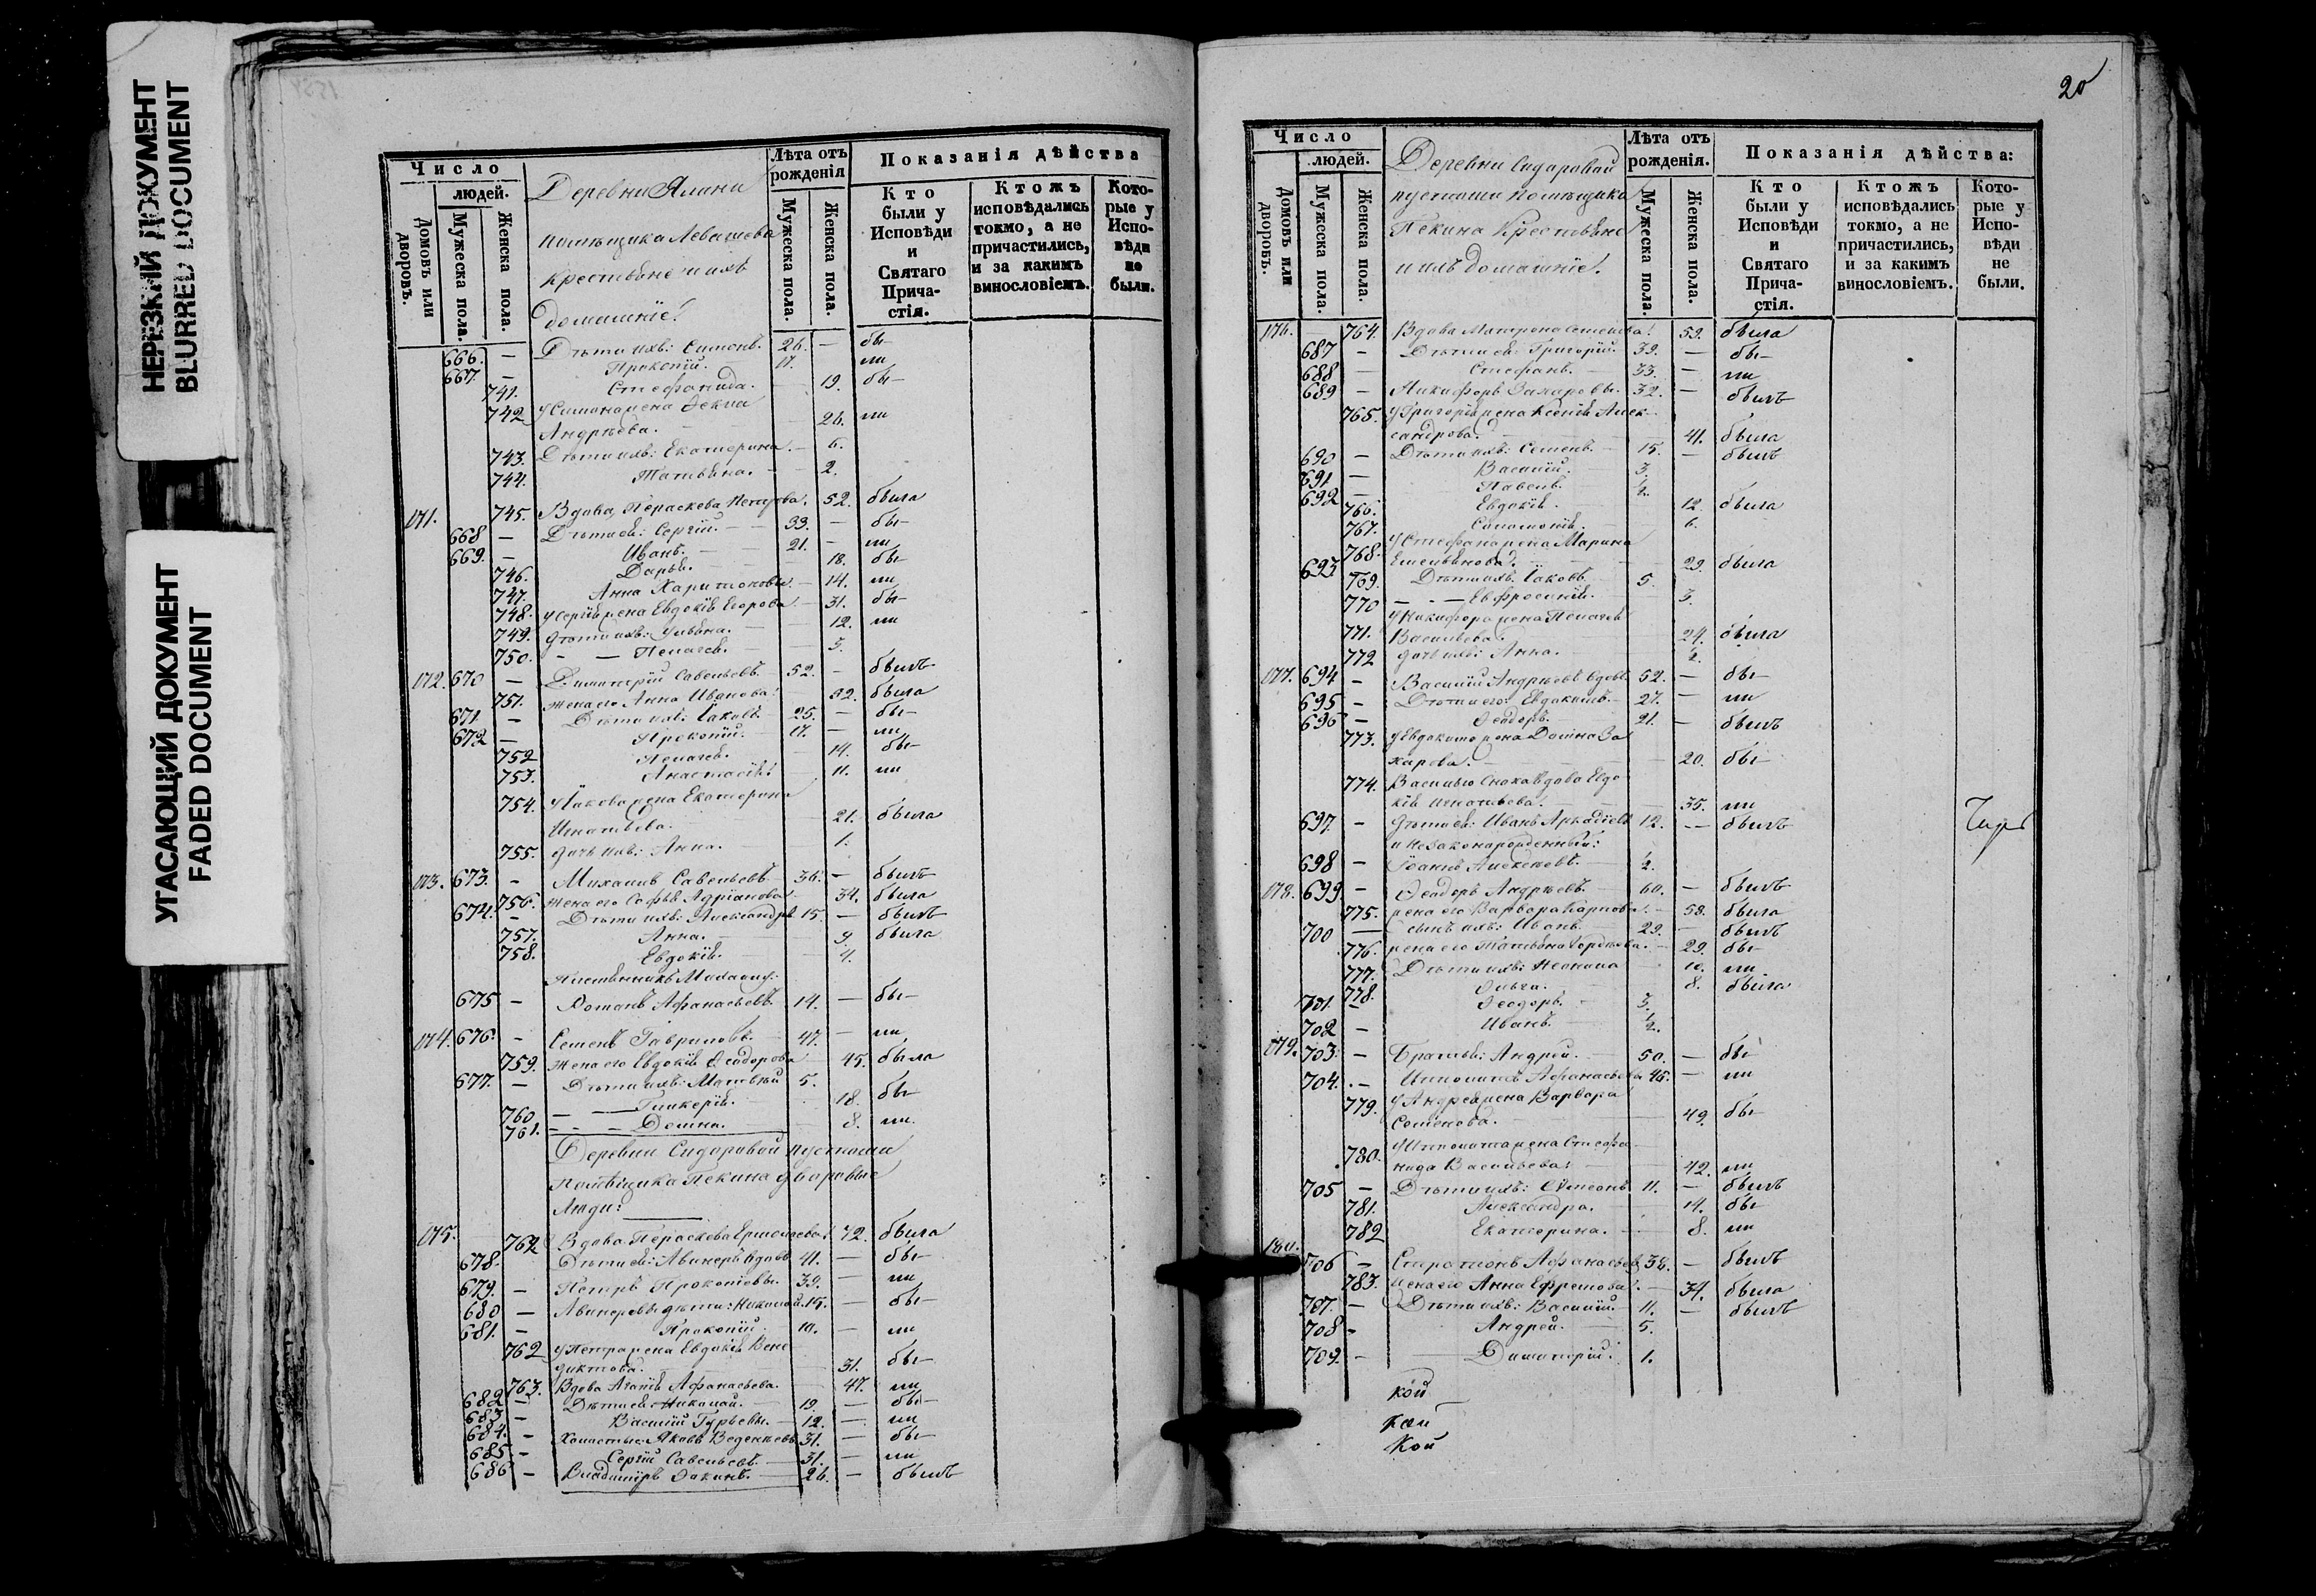 НЕРЕЗКИЙ ДОКУМЕНТ
BLURRED DOCUMENT
УГАСАЮЩИЙ ДОКУМЕНТ
FADED DOCUMENT
Число
людей.
Домовъ или дворовъ.
Мужеска пола.
Женска пола.
Деревни
помѣщика Левашева
крестьяне и ихъ
домашніе:
Лѣта отъ рожденія
Мужеска пола.
Женска пола.
Показанія дѣйства
Кто были у Исповѣди и Святаго Причастія.
Ктожъ исповѣдались токмо, а не причастились, и за какимъ винословіемъ.
Которые у Исповѣди не были.
666. — Дѣти ихъ: Симонъ. 26. — бы—
667. — Прокопій. 17. ли
741. Стефанида. — 19. бы—
742 У Симона жена Ѳекла
Андрѣева. — 26. ли
743. Дѣти ихъ: Екатерина. — 6.
744. Татьяна. — 2.
171. 745. Вдова, Параскева Петрова. 52. была
668 — Дѣти ея: Сергій. — 33. — бы—
669. — Иванъ. — 21. — ли
746. Дарья. — 18. бы—
747. Анна Харитоновы. — 14. ли
748. У Сергія жена Евдокія Егорова — 31. бы—
749. Дѣти ихъ: Ульяна. — 12. ли
750. — — Пелагея. — 3.
172. 670 — Димитрій Савельевъ — 52. — былъ
751. Жена его Анна Иванова. 52. была
671 — Дѣти ихъ: Іаковъ. 25. — бы—
672 — Прокопій. — 17. — ли
752 Пелагея. — 14. бы—
753. Анастасія. — 11. ли
754. У Іакова жена Екатерина
Игнатьева. — 21. была
755. Дочь ихъ: Анна. — 1.
173. 673. — Михаилъ Савельевъ — 36. — былъ
756. Жена его Софья Адріанова — 34. была
674. — Дѣти ихъ: Александръ 15. — былъ
757. Анна. — 9. была
758. Евдокія. — 4.
Михаилу:
675 — Романъ Афанасьевъ. 14. — бы—
174. 676. — Семенъ Гавриловъ. — 47. — ли
759. Жена его Евдокія Ѳеодорова — 45. была
677. — Дѣти ихъ: Матвѣй 5.
760 — — Гликерія. — 18. бы—
761. — — Домна. — 8. ли.
Деревни Сидаровой пустоши
помѣщика Пекина дворовые
люди:
175. 762 Вдова Параскева Ермолаева. 72. была
678. Дѣти ея: Авинеръ вдовъ 41. — бы—
679. — Петръ Прокопіевы. 39. — ли
680 — Авинеровы дѣти: Николай. 15. — бы—
681. — Прокопій. 10. — ли
762 У Петра жена Евдокія Вене
диктова. — 31. бы—
763. Вдова Агапія Афанасьева. — 47. ли
682 — Дѣти ея: Николай. — 19. — бы—
683 — Василій Гурьевы. — 12. — ли
684. — Холостые: Яковъ 31. — бы—
685 — Сергій Савельевъ — 31. — ли
686 — Владиміръ — 26. — былъ
20
Число
людей.
Домовъ или дворовъ.
Мужеска пола.
Женска пола.
Деревни Сидаровой
пустоши помѣщика
Пекина Крестьяне
и ихъ домашніе.
Лѣта отъ рожденія.
Мужеска пола.
Женска пола.
Показанія дѣйства:
Кто были у Исповѣди и Святаго Причастія.
Ктожъ исповѣдались токмо, а не причастились, и за какимъ винословіемъ.
Которые у Исповѣди не были.
176. — 764. Вдова Матрена Семенова. 59. была
687 — Дѣти ея: Григорій. 39. — бы—
688 — Стефанъ. — 33. — ли
689 — Никифоръ Захаровы. 32. — былъ
765. У Григорія жена Ксенія Алек
сандрова. — 41. была
690 — Дѣти ихъ: Семенъ. — 15. — былъ
691 — Василій. — 3.
692 — Павелъ. — ½.
766. Евдокія. — 12. была
767. Соломонія. — 6.
768. У Стефана жена Марина
Емельянова. — 29. была
693 769. Дѣти ихъ: Іаковъ. 5.
770 — — Евфросинія. — 3.
771. У Никифора жена Пелагея
Васильева. — 24. была
772 Дочь ихъ: Анна. — ½.
177. 694 — Василій Андрѣевъ вдовъ. 52. — бы—
695 — Дѣти его: Евдокимъ. — 27. — ли
696 — Ѳеодоръ. — 21. — былъ
773. У Евдокима жена Домна За
харова. — 20. бы—
774. Василью сноха вдова Евдо
кія Игнатьева. — 35. ли
697. — Дѣти ея: Иванъ 12. — былъ
и незаконорожденный:
698 — Іоаннъ Алексѣевъ. ½.
178. 699 — Ѳеодоръ Андрѣевъ. — 60. — былъ
775. Жена его Варвара Карпова. — 58. была
700 — Сынъ ихъ: Иванъ. — 29. — былъ
776. Жена его Татьяна — 29. бы—
777. Дѣти ихъ: Неонила — 10. ли
778. Ольга. — 8. была
701 — Ѳеодоръ. — 3.
702 — Иванъ. — ½.
179. 703. — Братья: Андрей. — 50. — бы—
704. — Ипполитъ Афанасьевы 46. — ли
779. У Андрея жена Варвара
Семенова. — 49. бы—
780. У Ипполита жена Стефа
нида Васильева. — 42. ли
705 — Дѣти ихъ: Симеонъ 11. — былъ
781. Александра. — 14. бы—
782 Екатерина. — 8. ли
180. 706 — Афанасьевъ 38. — былъ
783. Жена его Анна Ефремова. — 34. была
707. — Дѣти ихъ: Василій. — 11. — былъ
708 — Андрей. — 5.
709. — Димитрій. 1.
кой
кой